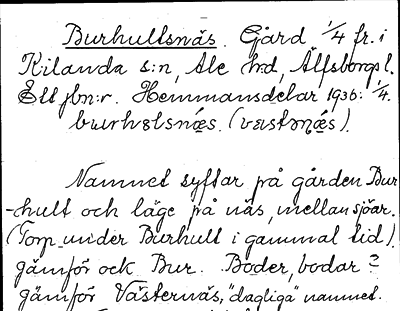 Burhultsnäs. Gård 1/4 fr. i
Kilanda s:n, Ale h:d, Älfsborgs l.
Ett jbn:r. Hemmansdelar 1936: 1/4.
burhɛlsnǽs. (vɛstɔnǽs).
Namnet syftar på gården Bur
-hult och läge på näs, mellan sjöar.
(Torp under Burhult i gammal tid).
gämför ock Bur. Boder, bodar?
gämför Västernäs, "dagliga" namnet.